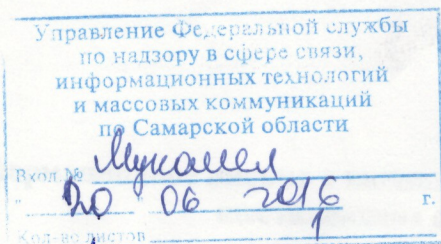 Управление Федеральной службы
по надзору в сфере связи,
информационных технологий
и массовых коммуникаций
по Самарской области
Вход.№ Мукомел
" 20 " 06 2016 г.
Кол-во листов 1